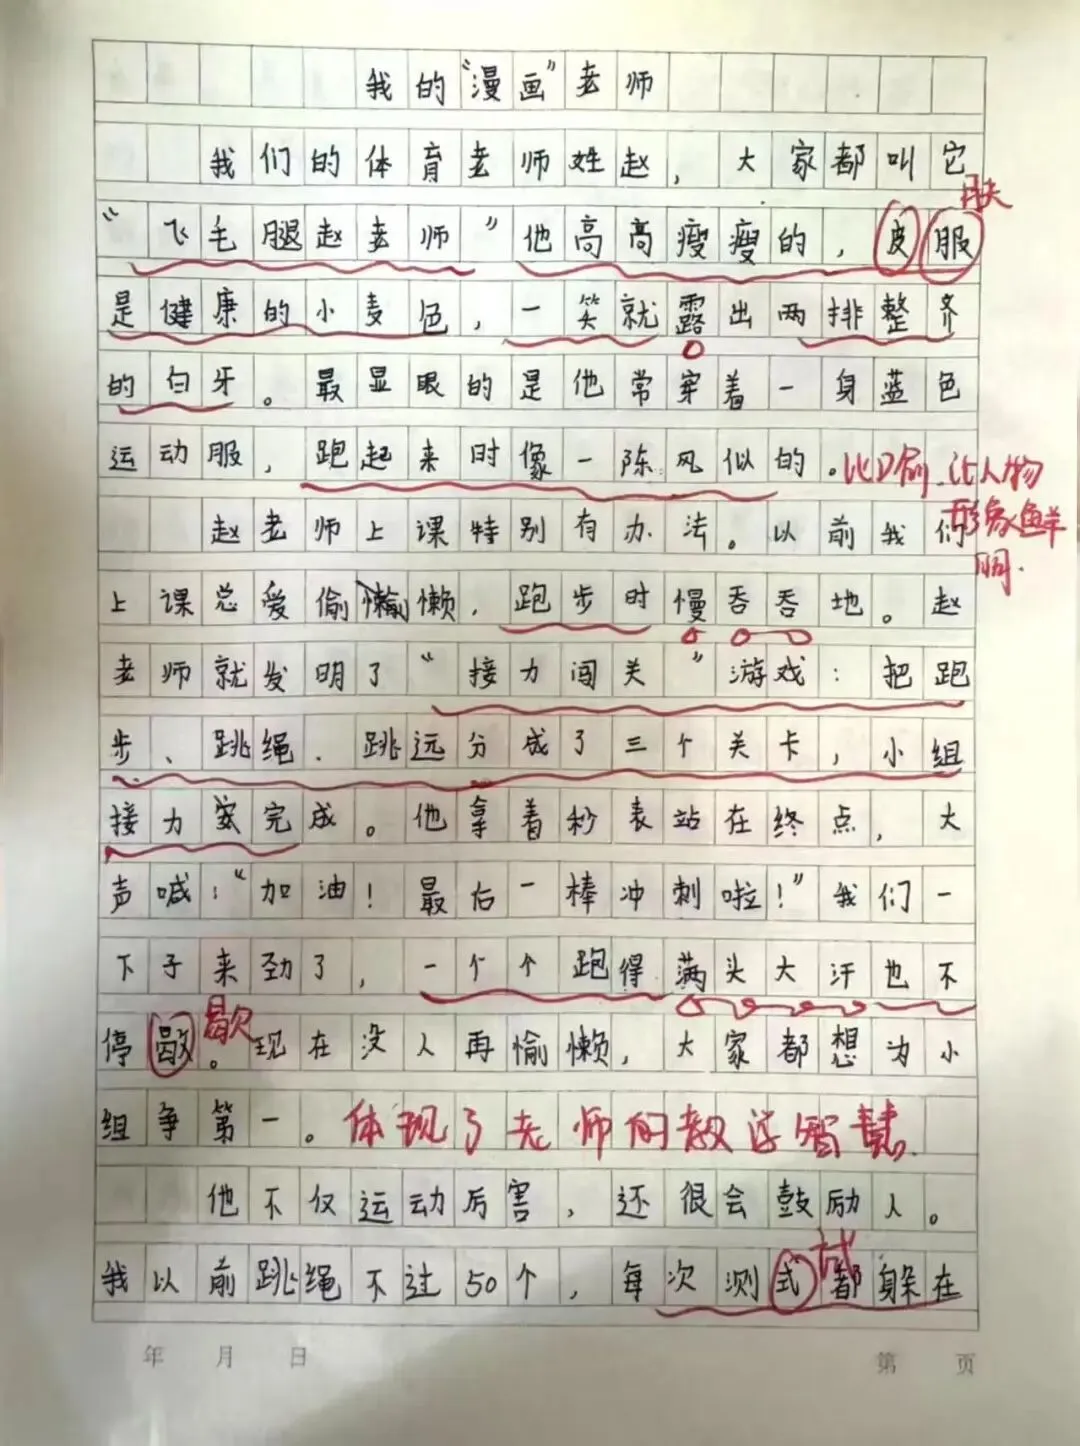 我的“漫画”老师
我们的体育老师姓赵，大家都叫它
肤
“飞毛腿赵老师”他高高瘦瘦的，皮服
是健康的小麦色，一笑就露出两排整齐
的白牙。最显眼的是他常穿着一身蓝色
运动服，跑起来时像一陈风似的。比喻，让人物
形象鲜
明.
赵老师上课特别有办法。以前我们
上课总爱偷懒，跑步时慢吞吞地。赵
老师就发明了“接力闯关”游戏：把跑
步、跳绳、跳远分成了三个关卡，小组
接力完成。他拿着秒表站在终点，大
声喊：“加油！最后一棒冲刺啦！”我们一
下子来劲了，一个个跑得满头大汗也不
歇
停。现在没人再愉懒，大家都想为小
组争第一。体现了老师的教学智慧.
他不仅运动厉害，还很会鼓励人。
试
我以前跳绳不过50个，每次测式都躲在
年 月 日 第 页